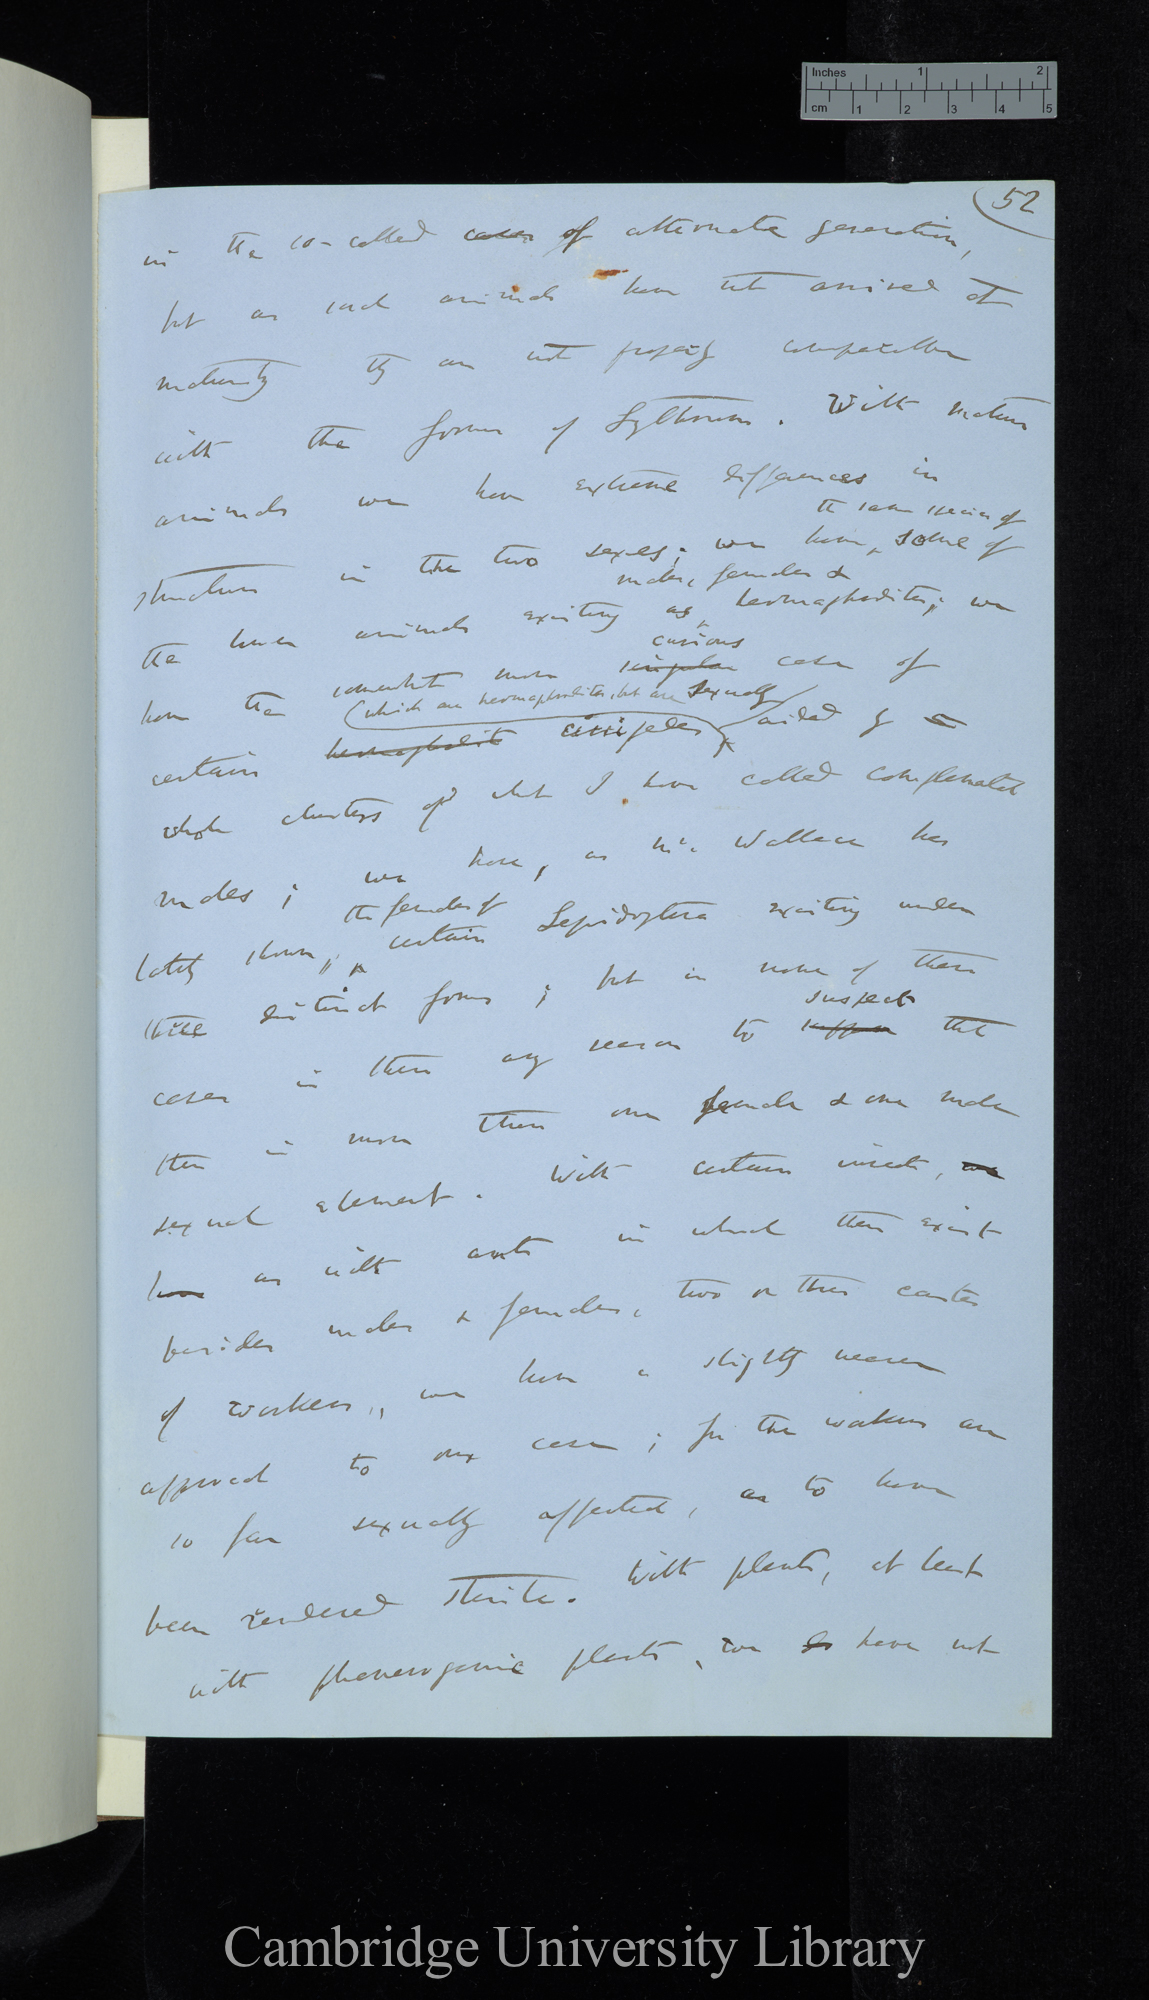 Inches 1 2
cm 1 2 3 4 5
52
in the so-called cases of alternate generation,
but as such animals have not arrived at
maturity they are not properly comparable
with the forms of Lythrum. With mature
animals we have extreme differences in
the same species of
structure in the two sexes; we have, some of
males, females &
the lower animals existing as hermaphrodites; we
curious
have the somewhat more singular case of
(which are hermaphrodites, but are sexually
certain hermaphrodite cirripedes aided by
whole clusters of what I have called complemental
males; we have, as Mr. Wallace has
the females of
lately shown, certain Lepidoptera existing under
three distinct forms; but in none of these
suspect
cases is there any reason to suppose that
there is more than one female & one male
sexual element. With certain insects, we
have as with ants in which there exist
besides males & females, two or three castes
of workers, we have a slightly nearer
approach to our case; for the workers are
so far sexually affected, as to have
been rendered sterile. With plants, at least
with phanerogamic plants, we do have not
Cambridge University Library